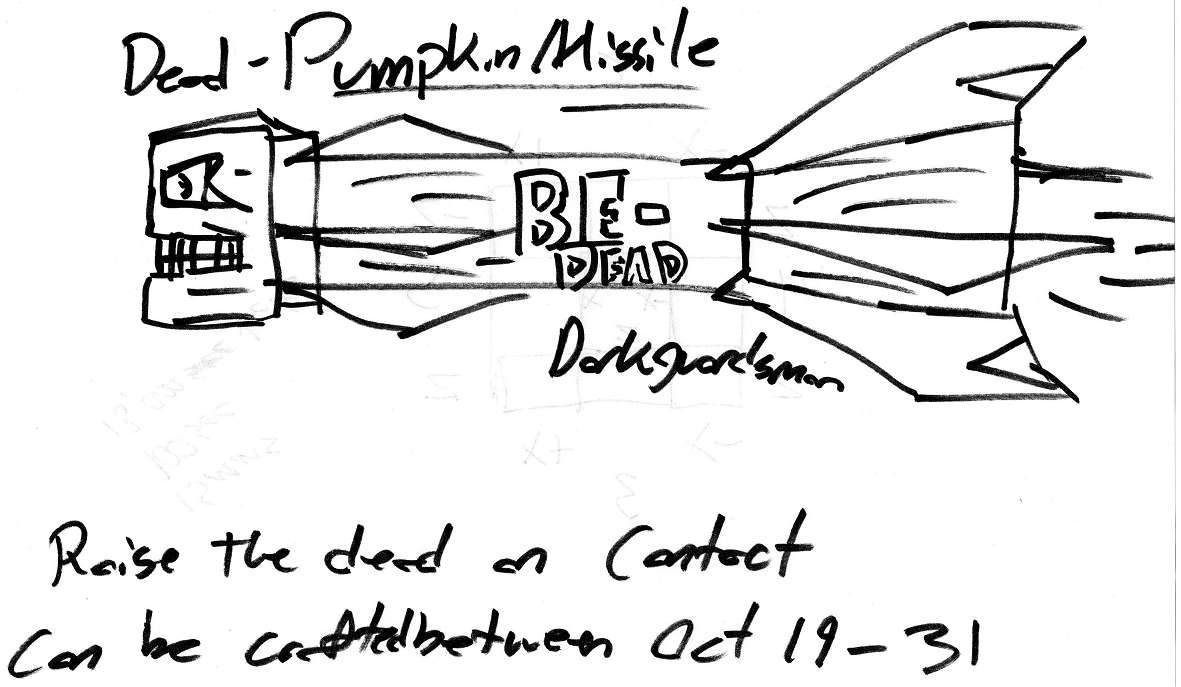 Dead-Pumpkin Missile
BE-
DEAD
Darkguardsman
Raise the dead on Contact
Can be crafted between Oct 19-31